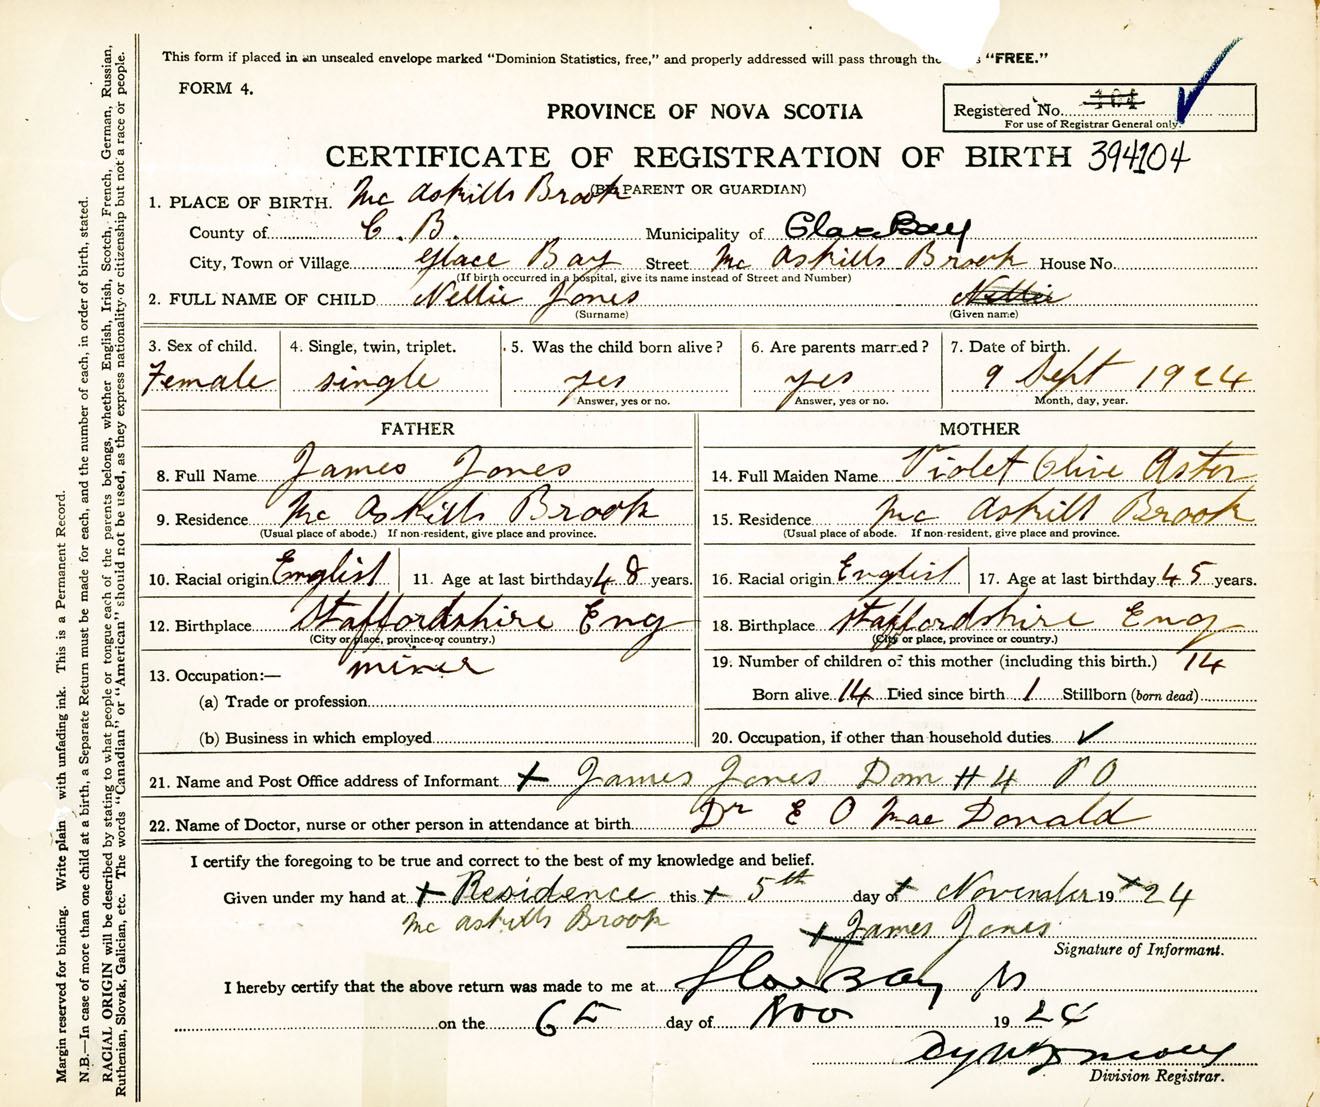 This form if placed in an unsealed envelope marked "Dominion Statistics, free," and properly addressed will pass through the "FREE."
FORM 4.
PROVINCE OF NOVA SCOTIA
Registered No. 104
For use of Registrar General only.
CERTIFICATE OF REGISTRATION OF BIRTH 394104
(BY PARENT OR GUARDIAN)
1. PLACE OF BIRTH. Mc Askills Brook
County of C. B. Municipality of Glace Bay
City, Town or Village Glace Bay Street Mc Askills Brook House No.
(If birth occurred in a hospital, give its name instead of Street and Number)
2. FULL NAME OF CHILD Nellie Jones Nellie
(Surname) (Given name)
3. Sex of child. 4. Single, twin, triplet. 5. Was the child born alive? 6. Are parents married? 7. Date of birth.
Female single yes yes 9 Sept 1924
Answer, yes or no. Answer, yes or no. Month, day, year.
FATHER MOTHER
8. Full Name James Jones 14. Full Maiden Name Violet Olive Astor
9. Residence Mc Askills Brook 15. Residence Mc Askill Brook
(Usual place of abode.) If non-resident, give place and province. (Usual place of abode. If non-resident, give place and province.
10. Racial origin English 11. Age at last birthday 48 years. 16. Racial origin English 17. Age at last birthday 45 years.
12. Birthplace Staffordshire Eng 18. Birthplace Staffordshire Eng
(City or place, province or country.) (City or place, province or country.)
13. Occupation:— miner 19. Number of children of this mother (including this birth.) 14
(a) Trade or profession Born alive 14 Died since birth 1 Stillborn (born dead)
(b) Business in which employed 20. Occupation, if other than household duties ✓
21. Name and Post Office address of Informant + James Jones Dom #4 P O
22. Name of Doctor, nurse or other person in attendance at birth Dr E O Mac Donald
I certify the foregoing to be true and correct to the best of my knowledge and belief.
Given under my hand at + Residence this + 5th day of + November 19 + 24
Mc Askills Brook + James Jones
Signature of Informant.
I hereby certify that the above return was made to me at Glace Bay
on the 6 day of Nov 19 24
Division Registrar.
Margin reserved for binding. Write plain with unfading ink. This is a Permanent Record.
N.B.—In case of more than one child at a birth, a Separate Return must be made for each, and the number of each, in order of birth, stated.
RACIAL ORIGIN will be described by stating to what people or tongue each of the parents belongs, whether English, Irish, Scotch, French, German, Russian,
Ruthenian, Slovak, Galician, etc. The words "Canadian" or "American" should not be used, as they express nationality or citizenship but not a race or people.